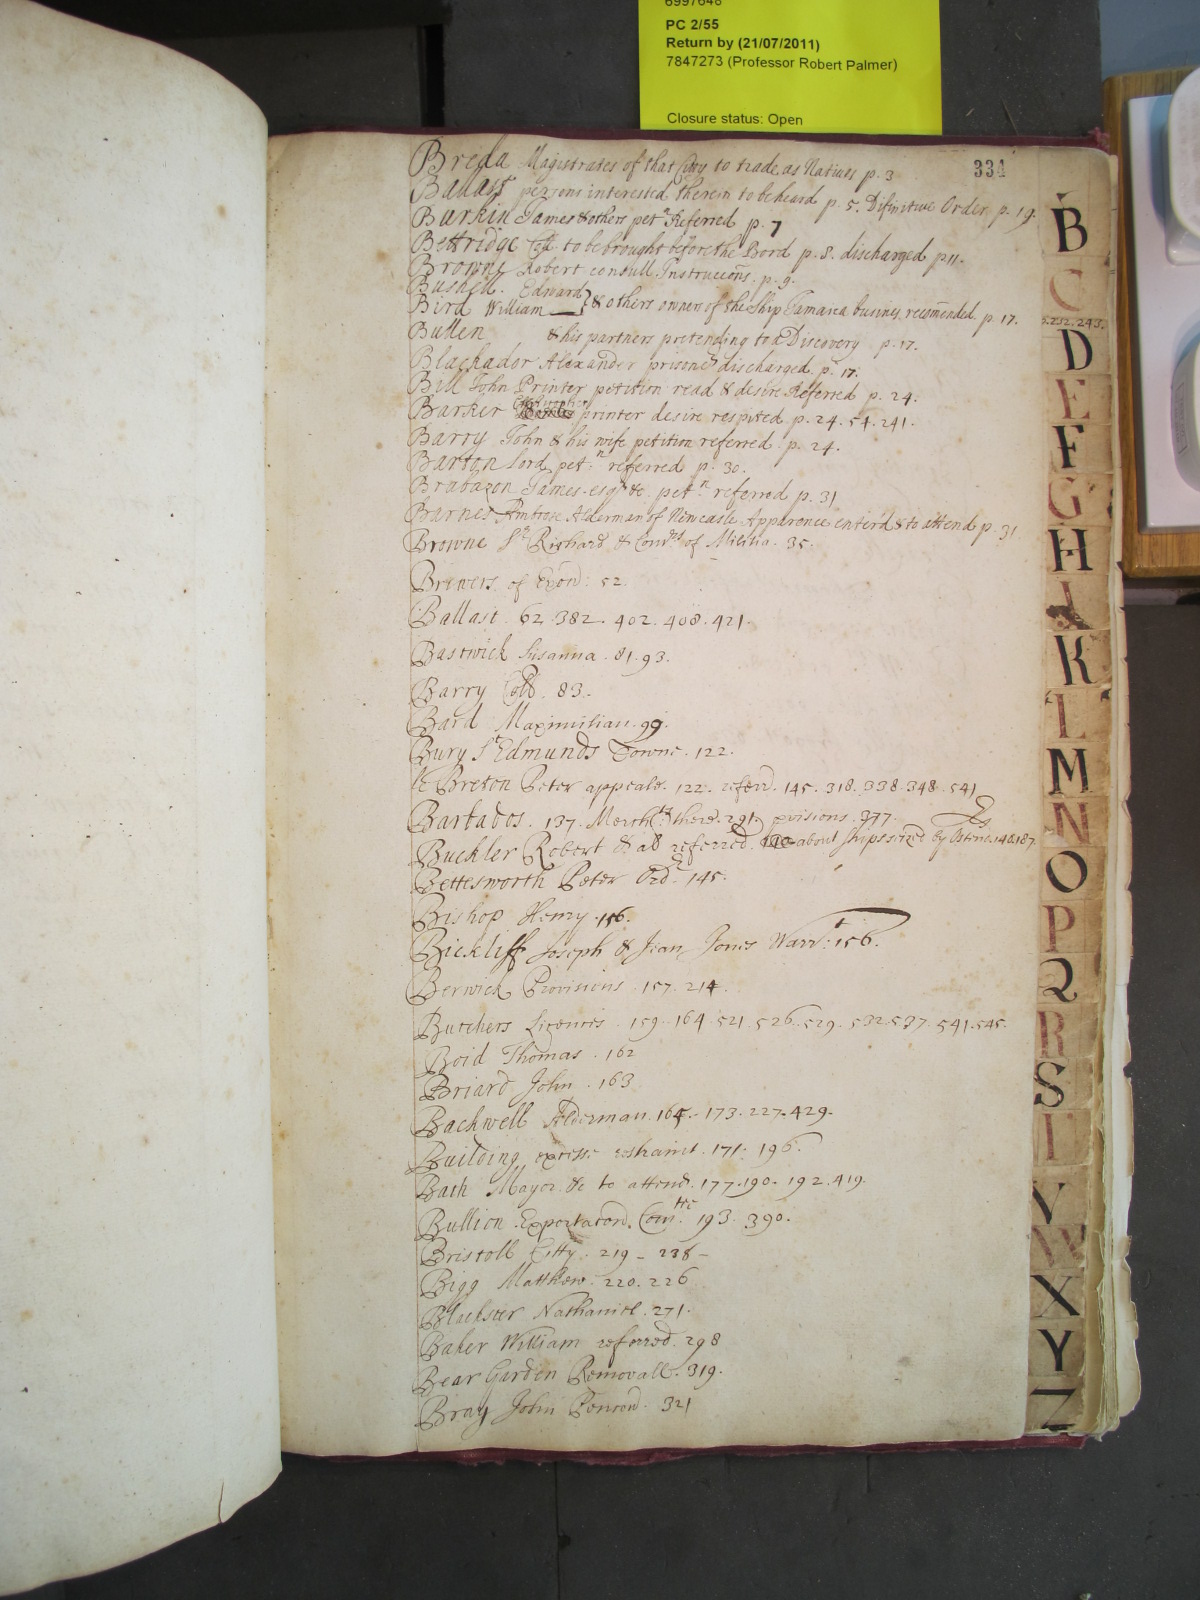 6997648
PC 2/55
Return by (21/07/2011)
7847273 (Professor Robert Palmer)
Closure status: Open
334
Breda Magistrates of that Citty to trade as Natives p. 3
Ballast persons interested therein to be heard p. 5. Difinitive Order p. 19.
Burkin James & others petn Referred p. 7
Bettridge Coll to be brought before the Bord p. 8. discharged p 11.
Browne Robert consull Instruccons. p. 9.
Bushell. Edward
Bird William } & others owner of the Ship Jamaica busines recomended p 17.
Bullen & his partners pretending to a Discovery p. 17.
Blackador Alexander prisoner discharged. p. 17.
Bill John Printer petition read & desire Referred p. 24.
Barker Christopher printer desire respited p. 24. 54. 241.
Barry John & his wife petition referred p. 24.
Barton Lord petn referred p. 30.
Brabazon James esqr &c. petn referred p. 31
Barnes Ambrose Alderman of Newcastle Apparence enterd & to attend p. 31
Browne Sr Richard & Comrs of Militia. 35.
Brewers of Oxon: 52
Ballast. 62. 382. 402. 408. 421.
Bastwick Susanna. 81. 93.
Barry Coll. 83.
Bard Maximilian. 99.
Bury St Edmunds Towne. 122.
le Breton Peter appeale. 122. referrd. 145. 318. 338. 348. 541
Barbados. 137. Mercht there. 291. provisions. 377.
Buckler Robert & al referred. about ships seized by Ostend. 140. 187.
Bettesworth Peter Ord. 145.
Bishop Henry. 156.
Bickliff Joseph & Jean Jones Warrt: 156.
Berwick Provisions. 157. 214.
Butchers Licences. 159. 164. 521. 526. 529. 532. 537. 541. 545.
Boid Thomas. 162
Briard John. 163
Backwell Alderman. 165. 173. 227. 429.
Building, excesse restraint. 171. 196.
Bath Mayor &c to attend. 177. 190. 192. 419.
Bullion. Exportacon. Comttee 193. 390.
Bristoll Citty. 219 - 238 -
Bigg Matthew. 220. 226
Blackster Nathaniel. 271.
Baker William referred. 298
Bear Garden Removall. 319.
Bray John 321
B
C
p. 232. 243.
D
E
F
G
H
I
K
L
M
N
O
P
Q
R
S
T
V
W
X
Y
Z